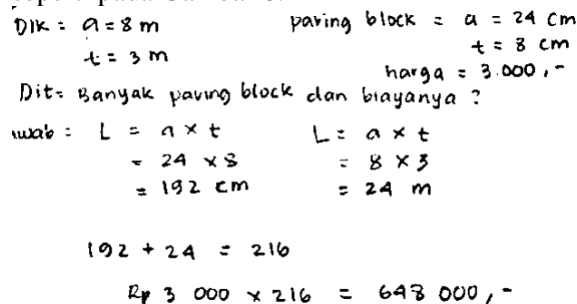 Dik = a = 8 m paving block = a = 24 cm
t = 3 m t = 8 cm
harga = 3.000,-
Dit = Banyak paving block dan biayanya ?
uwab : L = a x t L = a x t
= 24 x 8 = 8 x 3
= 192 cm = 24 m
192 + 24 = 216
Rp 3 000 x 216 = 648 000,-